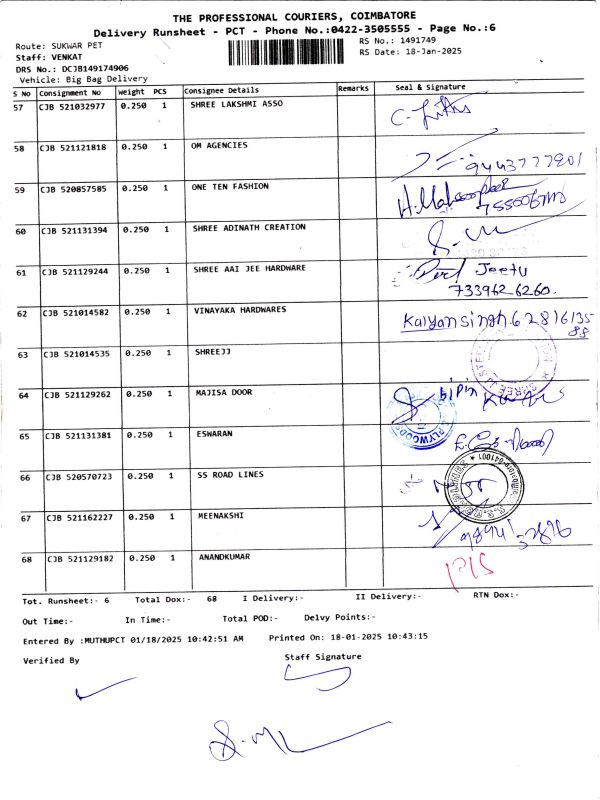 THE PROFESSIONAL COURIERS, COIMBATORE
Delivery Runsheet - PCT - Phone No.:0422-3505555 - Page No.:6
Route: SUKWAR PET
RS No.: 1491749
Staff: VENKAT
RS Date: 18-Jan-2025
DRS No.: DCJB149174906
Vehicle: Big Bag Delivery
S No Consignment No Weight PCS Consignee Details Remarks Seal & Signature
57 CJB 521032977 0.250 1 SHREE LAKSHMI ASSO
58 CJB 521121818 0.250 1 OM AGENCIES
9443777201
59 CJB 520857585 0.250 1 ONE TEN FASHION
60 CJB 521131394 0.250 1 SHREE ADINATH CREATION
61 CJB 521129244 0.250 1 SHREE AAI JEE HARDWARE Jeetu
7339626260.
62 CJB 521014582 0.250 1 VINAYAKA HARDWARES Kalyansingh 62816135
88
63 CJB 521014535 0.250 1 SHREEJJ
64 CJB 521129262 0.250 1 MAJISA DOOR
65 CJB 521131381 0.250 1 ESWARAN
66 CJB 520570723 0.250 1 SS ROAD LINES
67 CJB 521162227 0.250 1 MEENAKSHI
68 CJB 521129182 0.250 1 ANANDKUMAR
Tot. Runsheet:- 6 Total Dox:- 68 I Delivery:- II Delivery:- RTN Dox:-
Out Time:- In Time:- Total POD:- Delvy Points:-
Entered By :MUTHUPCT 01/18/2025 10:42:51 AM Printed On: 18-01-2025 10:43:15
Verified By Staff Signature